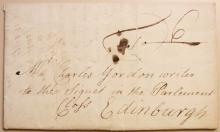 Mr Charles Gordon writer
to the Signet in the Parlement
Closs Edinburgh